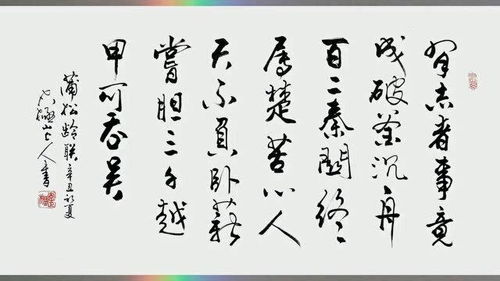 有志者事竟
成破釜沉舟
百二秦關終
屬楚苦心人
天不負卧薪
嘗胆三千越
甲可吞吴
蒲松龄联辛丑初夏
山人書